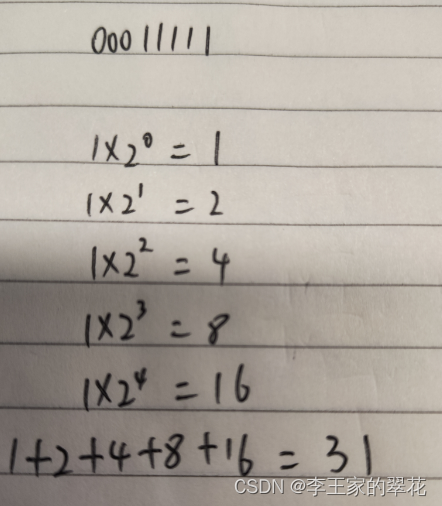 00011111
1×2⁰ = 1
1×2¹ = 2
1×2² = 4
1×2³ = 8
1×2⁴ = 16
1+2+4+8+16 = 31
CSDN @李王家的翠花